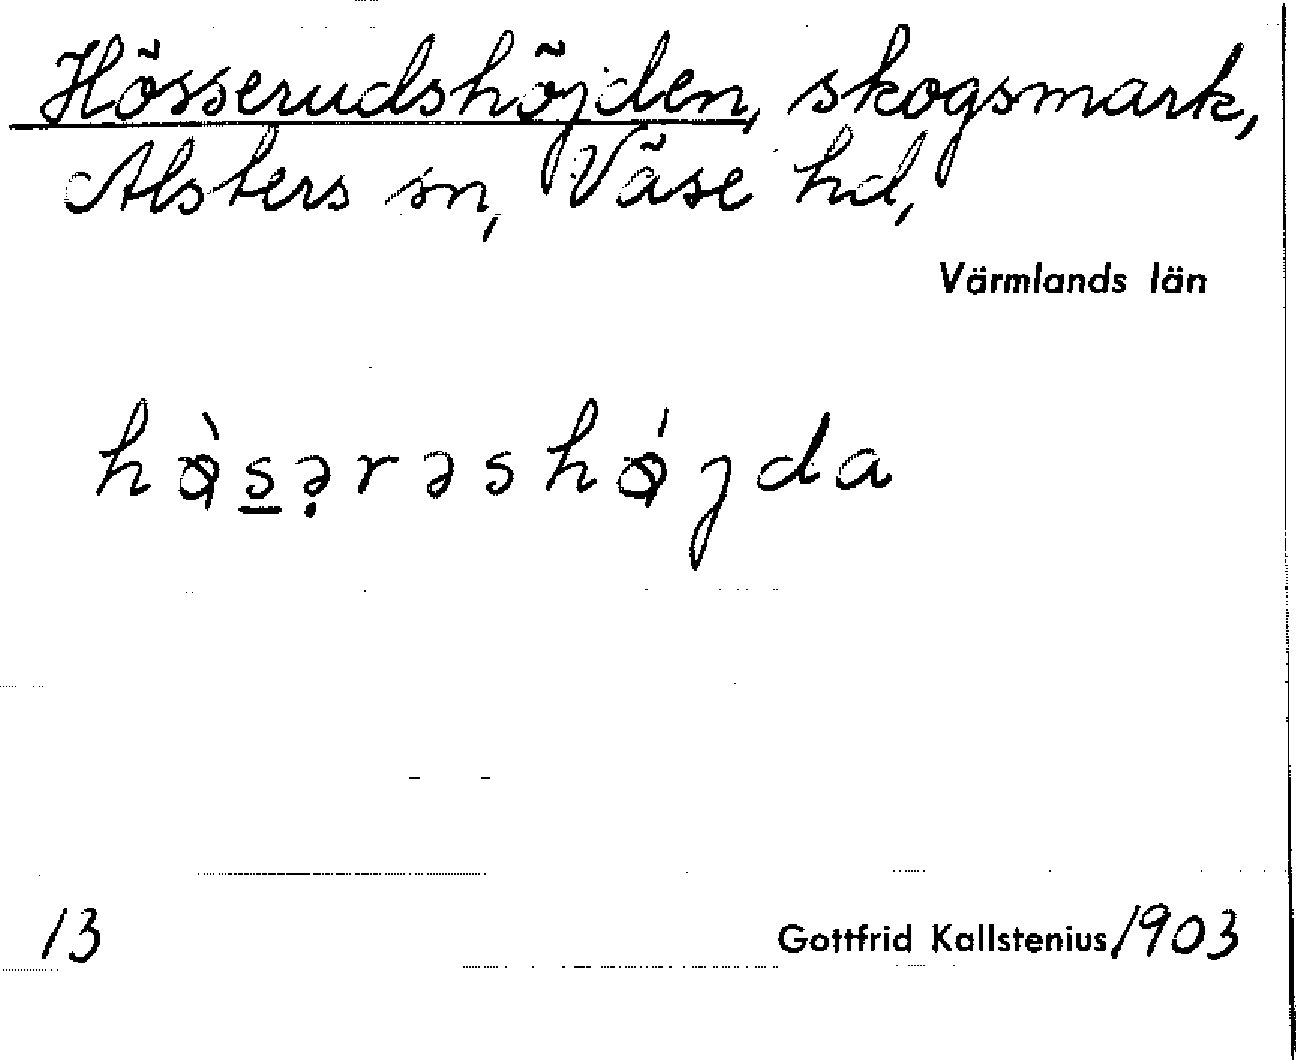 Hösserudshöjden, skogsmark,
Alsters sn, Väse hd,
Värmlands län
hø̀s̲ə̣rəshǿjda
13
Gottfrid Kallstenius 1903